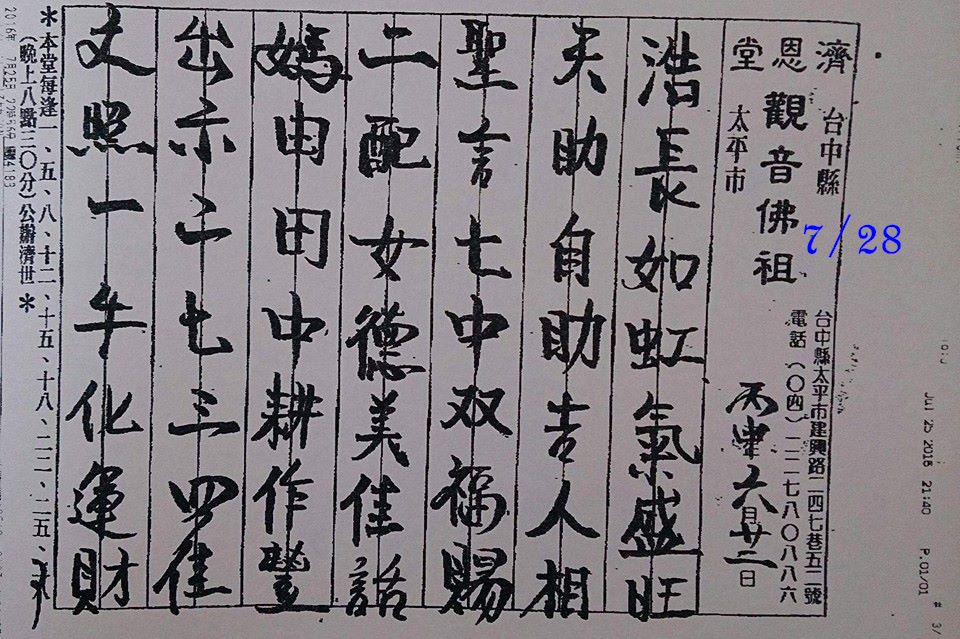 Jul 25 2016 21:40 P.01/01
濟恩堂
台中縣
觀音佛祖
太平市
7/28
台中縣太平市建興路二四七巷五二號
電話（〇四）二二七八〇八八六
丙申六月廿二日
浩長如虹氣盛旺
天助自助吉人相
聖言七中双福賜
二配女德美佳話
媽由田中耕作豐
出示二七三四佳
文照一牛化運財
＊本堂每逢一、五、八、十二、十五、十八、二二、二五、
（晚上八點三〇分）公辦濟世＊
2016年 7月25日 22時56分